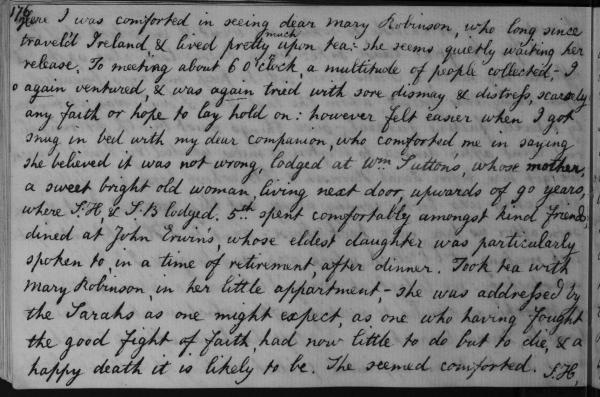 176
here I was comforted in seeing dear Mary Robinson, who long since
travel'd Ireland, & lived pretty much upon tea:- she seems quietly waiting her
release. To meeting about 6 o'clock, a multitude of people collected,- I
again ventured, & was again tried with sore dismay & distress, scarcely
any faith or hope to lay hold on: however felt easier when I got
snug in bed with my dear companion, who comforted me in saying
she believed it was not wrong, lodged at Wm Sutton's, whose mother,
a sweet bright old woman, living next door, upwards of 90 years,
where S:H & S:B lodged. 5th spent comfortably amongst kind friends,
dined at John Erwin's, whose eldest daughter was particularly
spoken to in a time of retirement, after dinner. Took tea with
Mary Robinson, in her little appartment,- she was addressed by
the Sarahs as one might expect, as one who having fought
the good fight of faith, had now little to do but to die, & a
happy death it is likely to be. She seemed comforted. S:H,